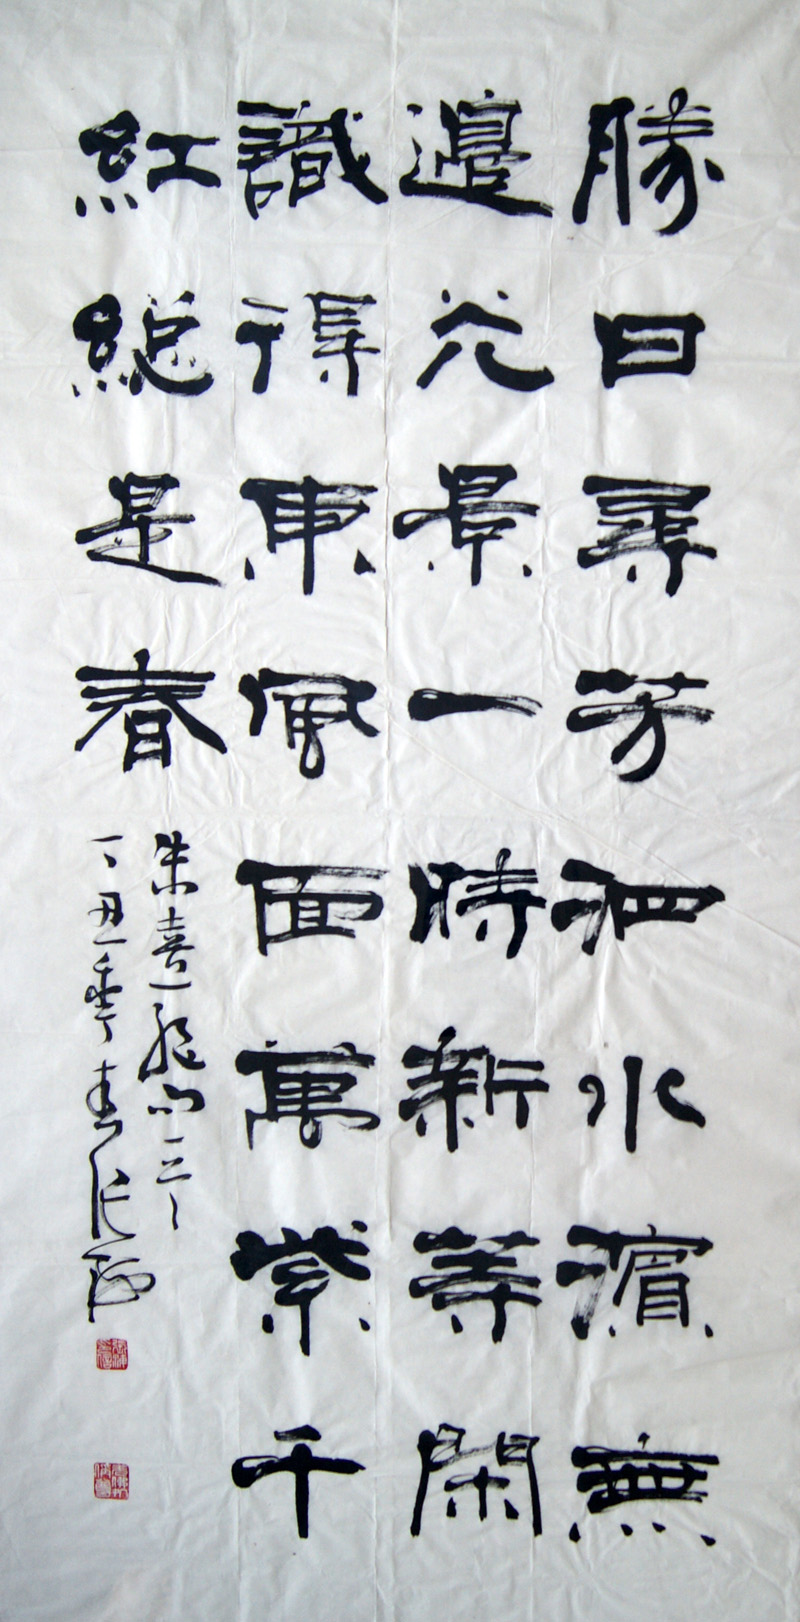 勝日尋芳泗水濱無
邊光景一時新等閑
識得東風面萬紫千
紅總是春
朱熹
丁丑